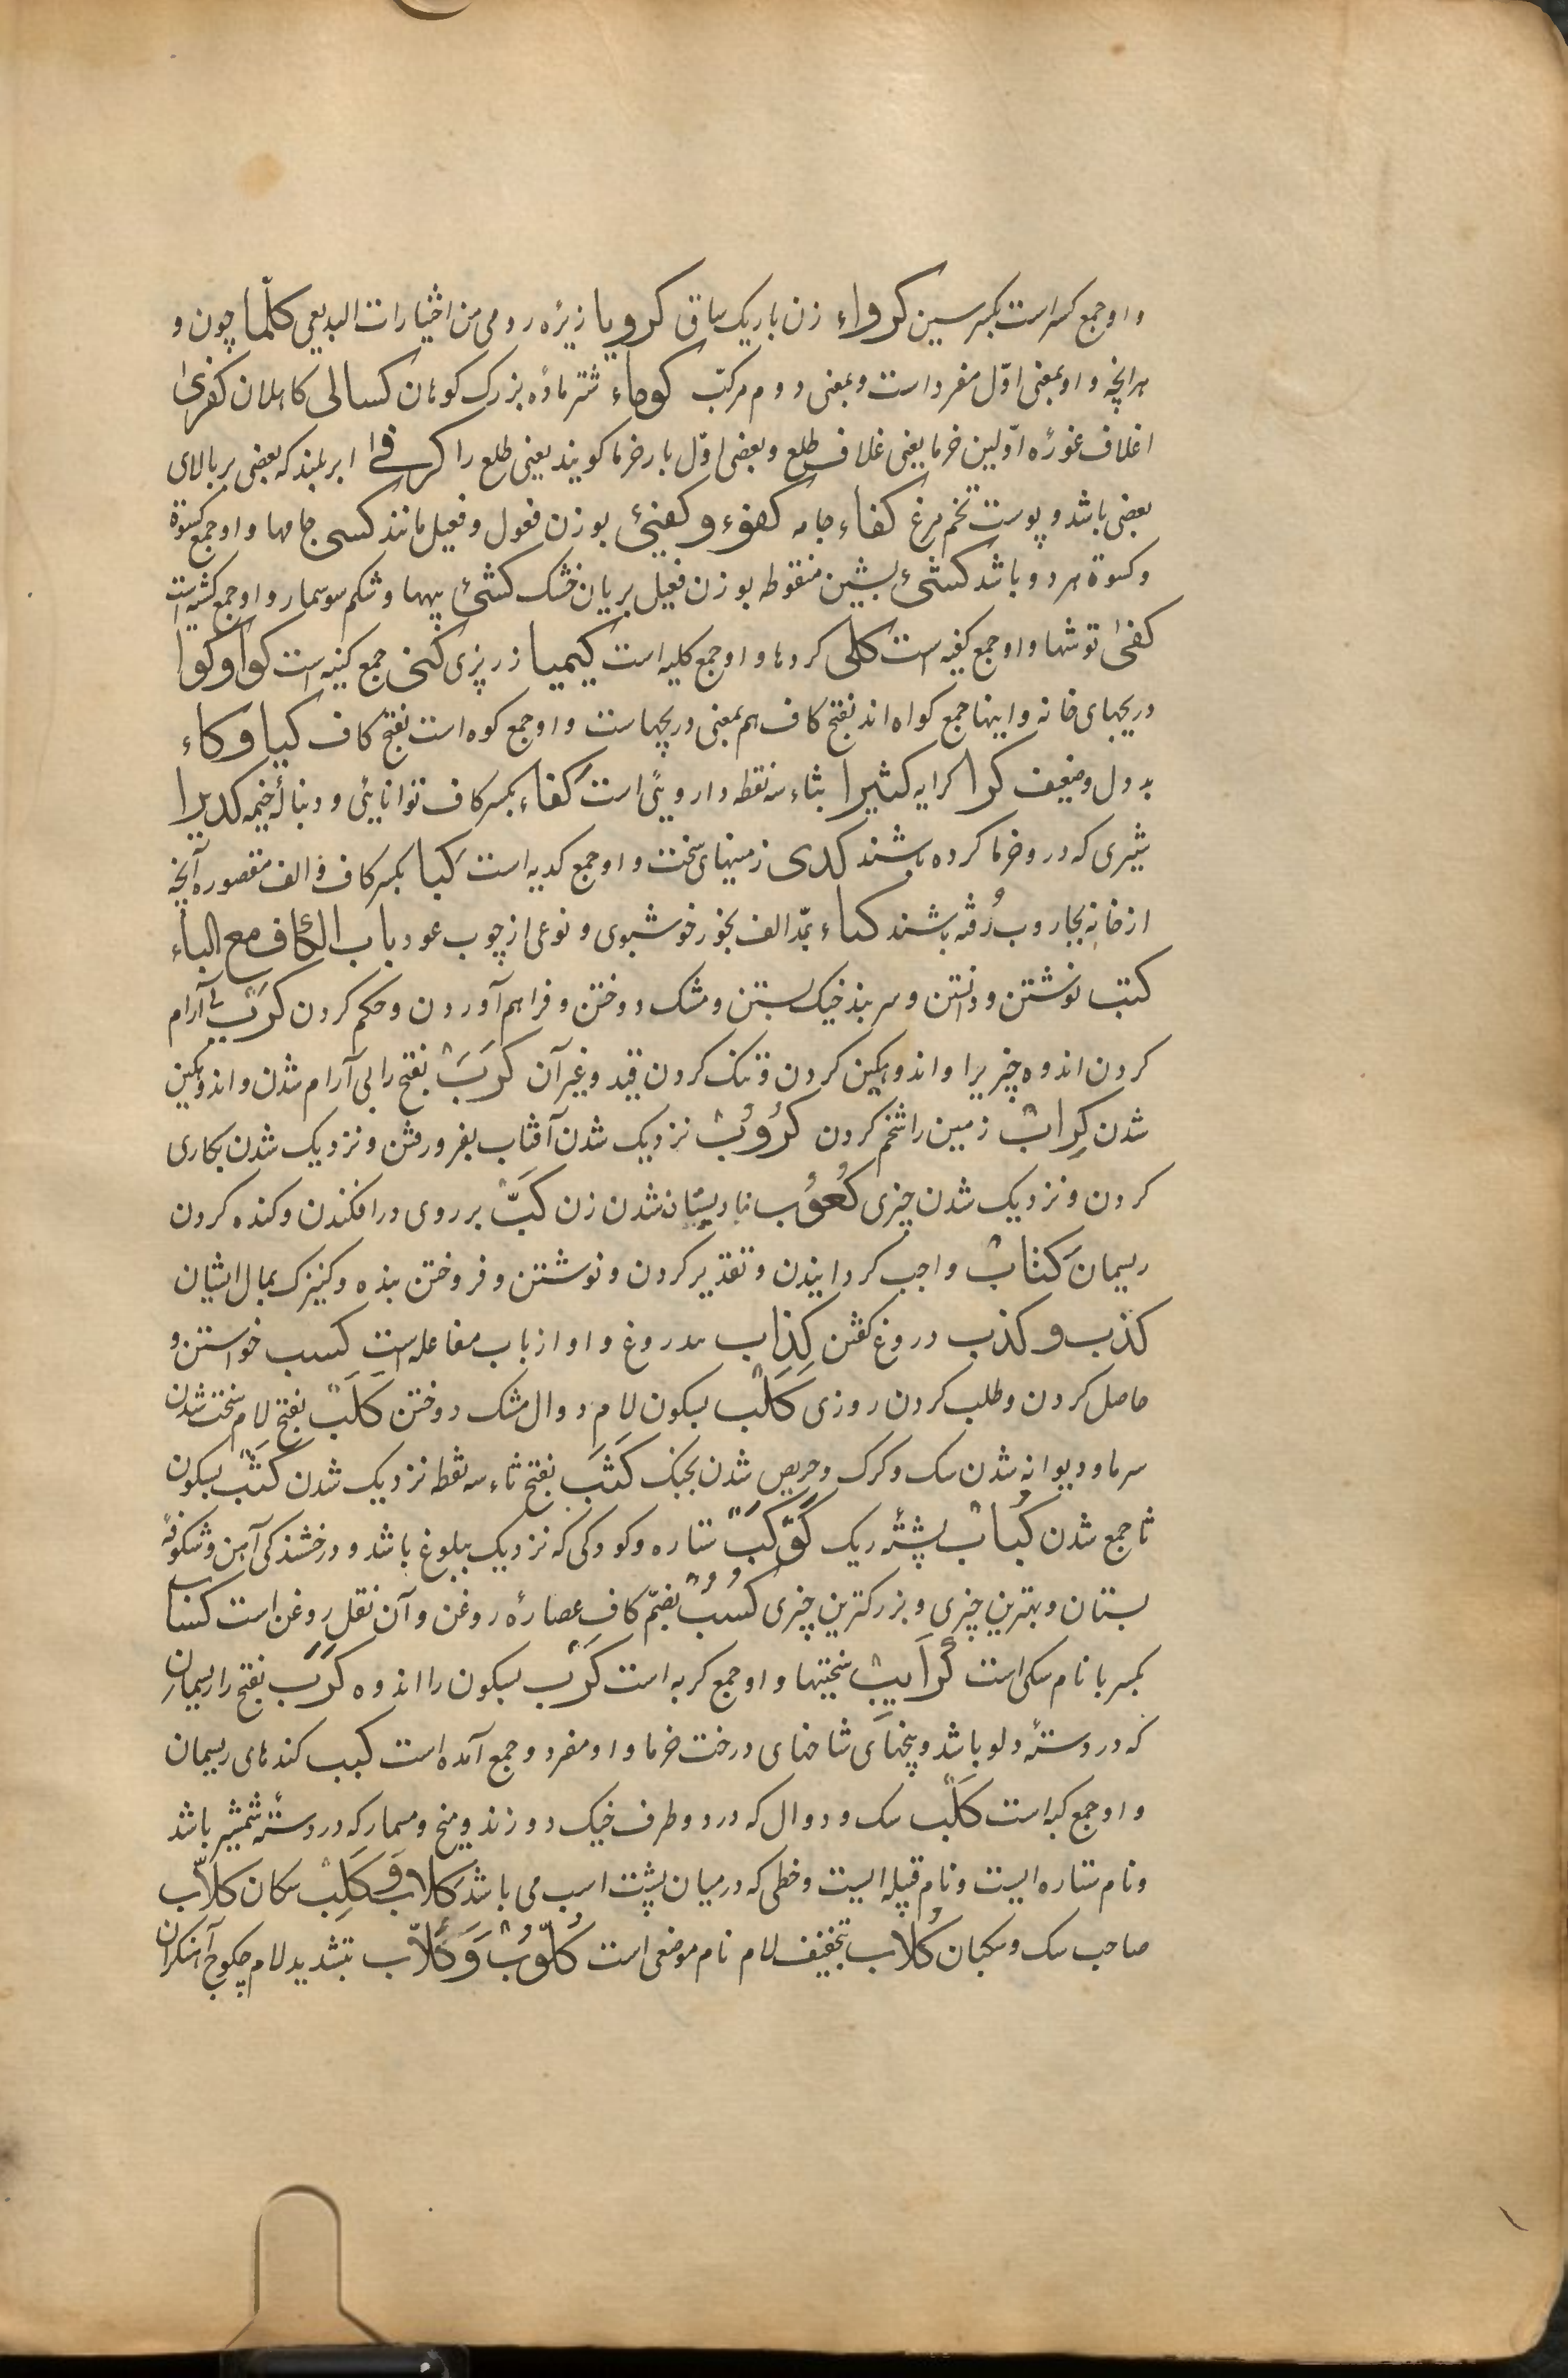 و او جمع کسر است بکسر سین کرواء زن باریک ساق کرویا زیرٔه رومی من اختیارات البدیعی کلّما چون و
هرانچه و او بمعنی اوّل مفرد است و بمعنی دوم مرکبّ کوماء شتر مادٔه بزرک کوهان کسالی کاهلان کفرّیٰ
غلاف غورٔه اوّلین خرما یعنی غلاف طلع و بعضی اوّل بار خرما کویند یعنی طلع را کرفئ ابر بلند که بعضی بر بالای
بعضی باشد و پوست تخم مرغ کفاء جامه کفوء و کفیئ بوزن فعول و فعیل مانند کسی جامها و او جمع کسوة
و کسوة هر دو باشد کشئ بشین منقوطه بوزن فعیل بریان خشک کشئ پیهها و شکم سوسمار و او جمع کشیه است
کفیٰ توشها و او جمع کفیه است کلی کردها و او جمع کلیه است کیمیا زرپزی کنی جمع کنیه است کوا و کوا
دریچهای خانه و اینها جمع کواه اند بفتح کاف هم بمعنی دریچهاست و او جمع کوه است بفتح کاف کیا و کاء
بد دل و ضعیف کرا کرایه کثیرا بثاء سه نقطه داروئی است کفاء بکسر کاف توانایئی و دنبالٔه خیمه کدیرا
شیری که در و خرما کرده باشند کدی زمینهای سخت و او جمع کدیه است کبا بکسر کاف و الف مقصوره آنچه
از خانه بجاروب رُفته باشند کباء بمّد الف بخور خوشبوی و نوعی از چوب عود باب الکاف مع الباء
کتب نوشتن و دانستن و سر بند خیک بستن و مشک دوختن و فراهم آوردن و حکم کردن کرب بی آرام
کردن اندوه چیزیرا و اندوهکین کردن و تنک کردن قید و غیر آن کرَب بفتح را بی آرام شدن و اندوهکین
شدن کِراب زمین را شخم کردن کرُوُب نزدیک شدن آفتاب بفرو رفتن و نزدیک شدن بکاری
کردن و نزدیک شدن چیزی کُعوُب نار پستان شدن زن کَبّ بر روی در افکندن و کنده کردن
ریسمان کتاب واجب کردایندن و تقدیر کردن و نوشتن و فروختن بنده و کنیزک بمال ایشان
کذب و کذب دروغ کفتن کِذاب بدروغ و او از باب مفاعله است کسب خواستن و
حاصل کردن و طلب کردن روزی کَلْب بسکون لام دوال مشک دوختن کَلَب بفتح لام سخت شدن
سرما و دیوانه شدن سک و کرک و حریص شدن بجنک کَثَب بفتح ثاء سه نقطه نزدیک شدن کَثْب بسکون
ثا جمع شدن کُباب پشتٔه ریک کَوْکَب ستاره و کودکی که نزدیک ببلوغ باشد و درخشندکی آهن و شکوفهٔ
بستان و بهترین چیزی و بزرکترین چیزی کُسُب بضمّ کاف عصارٔه روغن و آن ثفل روغن است کسا
بکسر با نام سکی است کَرَایِب سختیها و او جمع کربه است کَرْب بسکون را اندوه کَرَب بفتح را ریسمانی
که در دستٔه دلو باشد و بیخهای شاخهای درخت خرما و او مفرد و جمع آمده است کبب کندهای ریسمان
و او جمع کبه است کَلْب سک و دوال که در دو طرف خیک دوزند و میخ و مسمار که در دستٔه شمشیر باشد
و نام ستاره ایست و نام قبیله ایست و خطی که در میان پشت اسب می باشد کلاب و کَلِب سکان کلاّب
صاحب سک و سکبان کُلاب بتخفیف لام نام موضعی است کُلّوُب و کُلاّب بتشدید لام چکوچ آهنکران